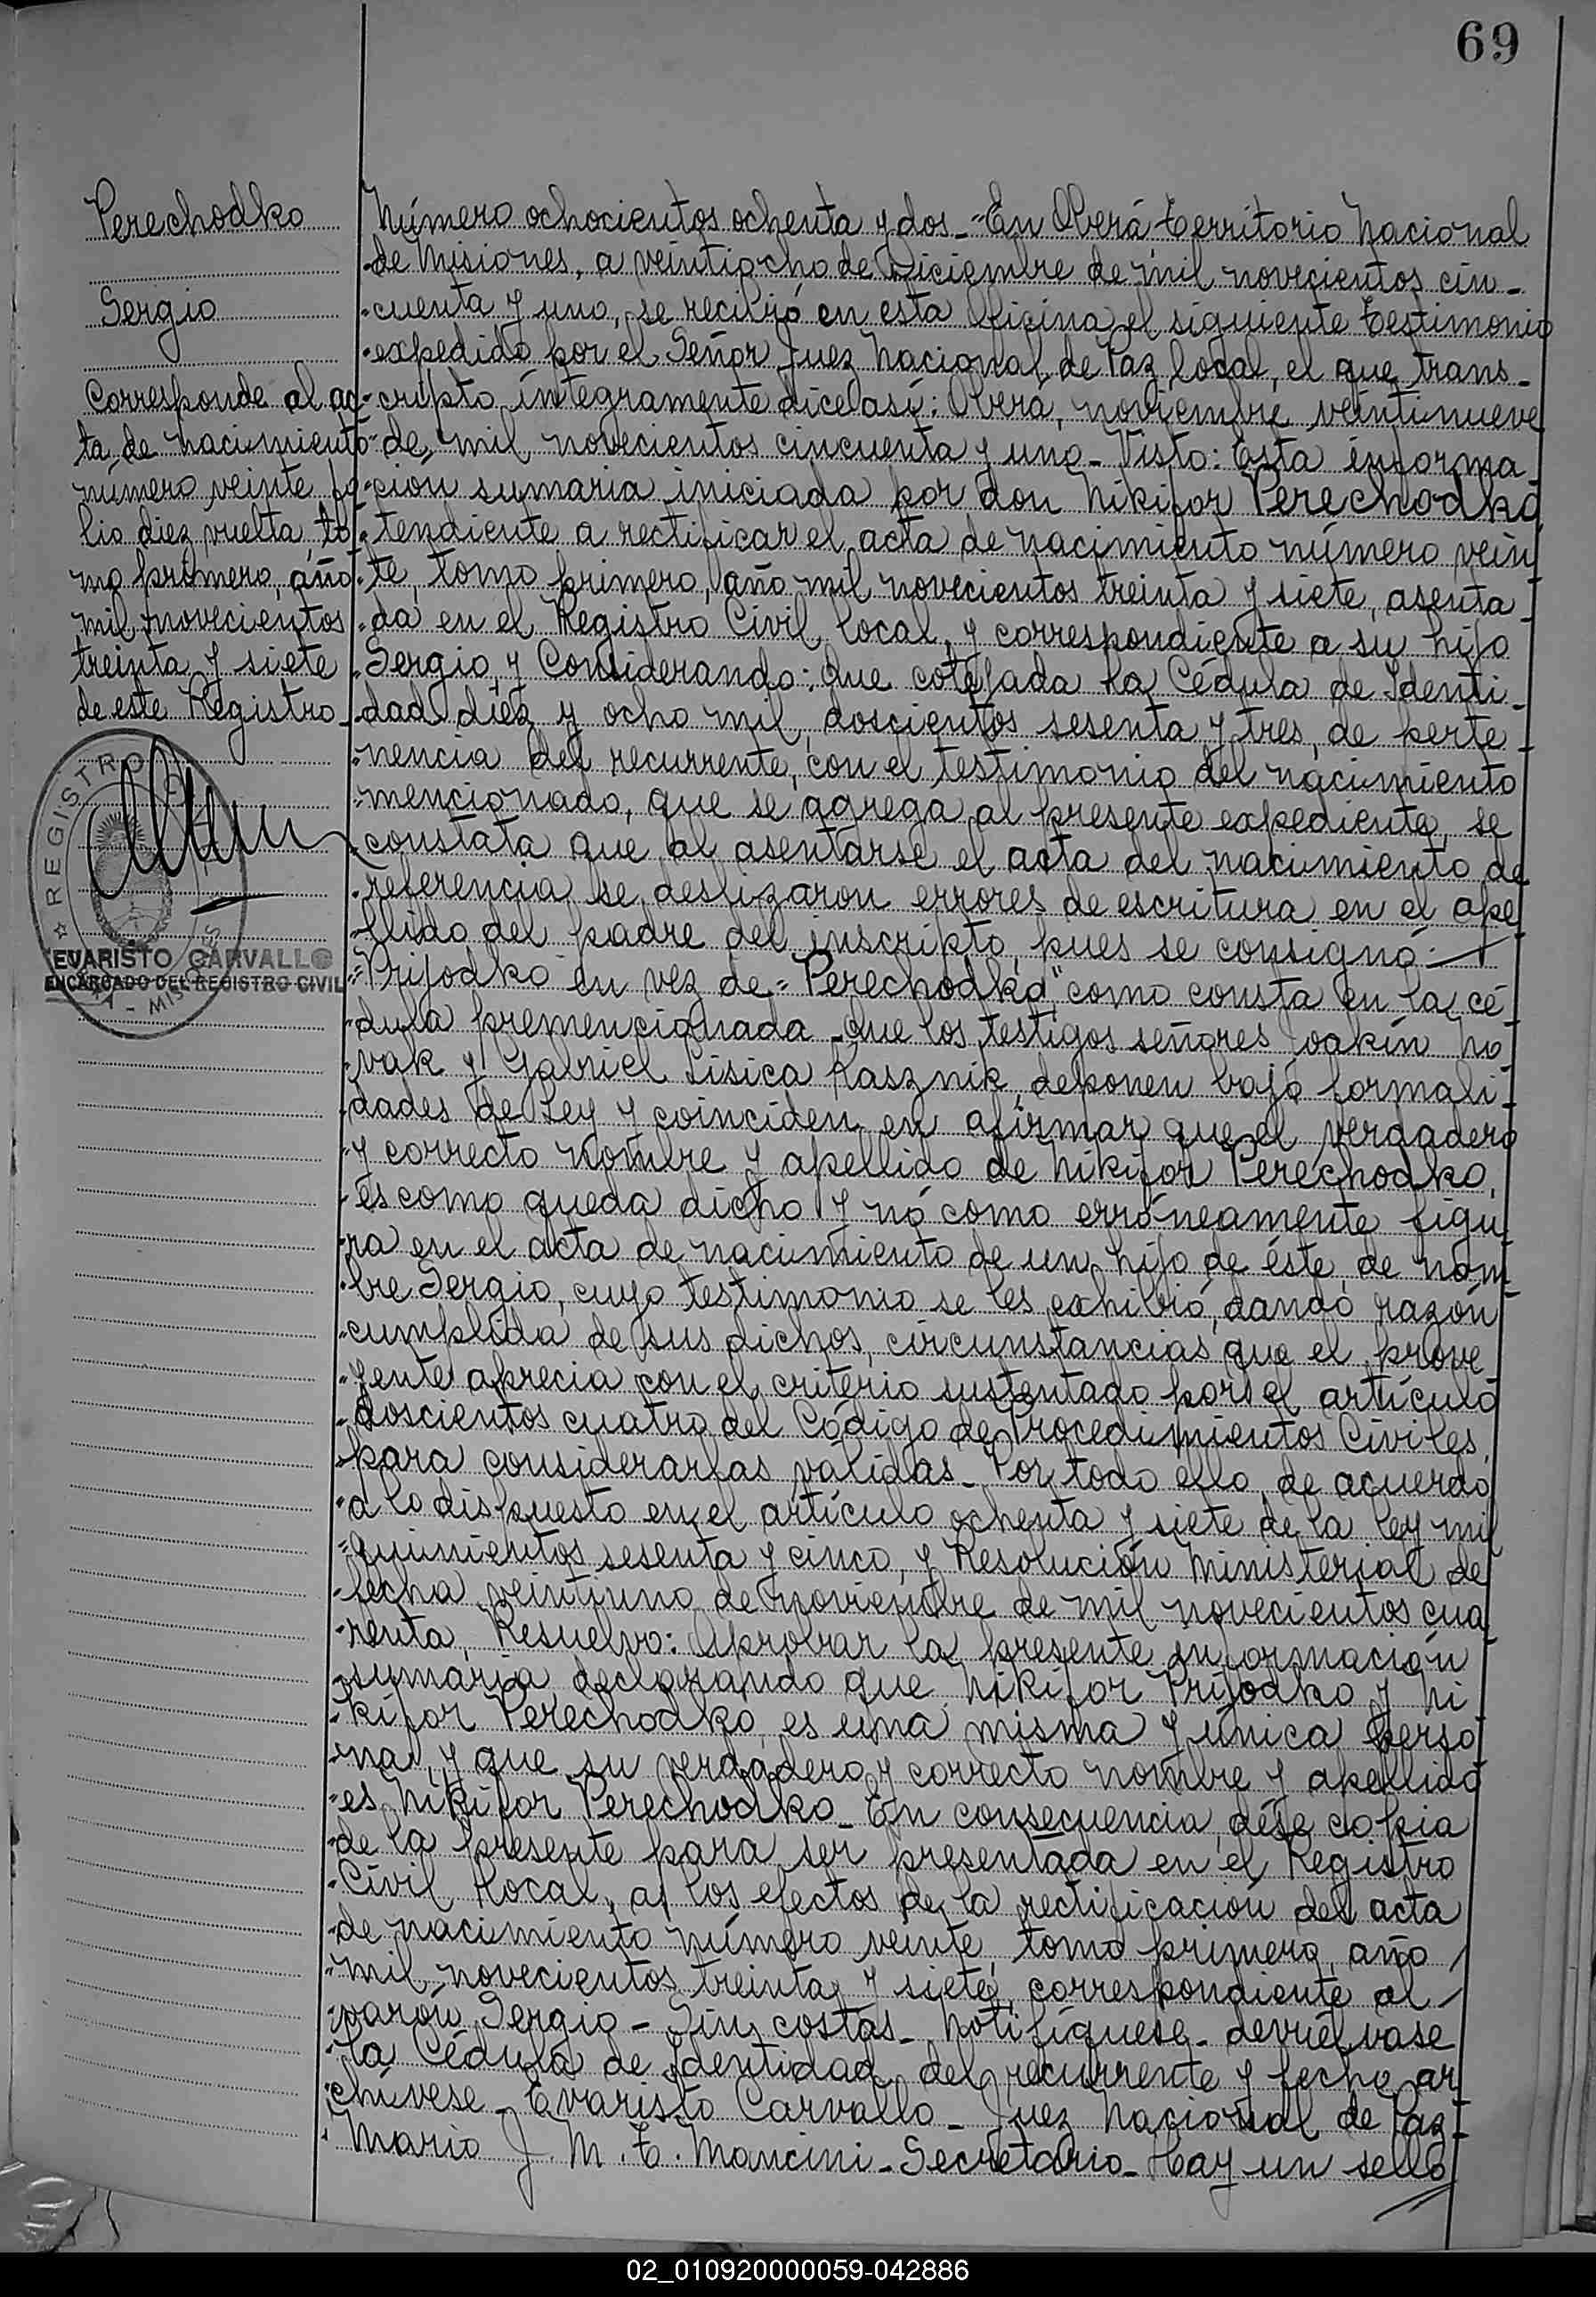 69
Perechodko
Sergio
Corresponde al ac-
ta de nacimiento
número veinte fo-
lio diez vuelta, to-
mo primero, año
mil novecientos
treinta y siete
de este Registro_
REGISTRO
MISIONES
EVARISTO CARVALLO
ENCARGADO DEL REGISTRO CIVIL
Número ochocientos ochenta y dos_ "En Oberá Territorio Nacional
de Misiones, a veintiocho de Diciembre de mil novecientos cin-
cuenta y uno, se recibió en esta Oficina el siguiente testimonio
expedido por el Señor Juez Nacional de Paz local, el que trans-
cripto íntegramente dice así: Oberá, noviembre veintinueve
de mil novecientos cincuenta y uno_ Visto: Esta informa-
ción sumaria iniciada por don Nikifor Perechodko,
tendiente a rectificar el acta de nacimiento número vein-
te, tomo primero, año mil novecientos treinta y siete, asenta-
da en el Registro Civil local, y correspondiente a su hijo
Sergio, y Considerando: Que cotejada la Cédula de Identi-
dad diez y ocho mil doscientos sesenta y tres, de perte-
nencia del recurrente, con el testimonio del nacimiento
mencionado, que se agrega al presente expediente, se
constata que al asentarse el acta del nacimiento de
referencia se deslizaron errores de escritura en el ape-
llido del padre del inscripto, pues se consignó:
"Prijodko" en vez de "Perechodko", como consta en la cé-
dula premencionada_ Que los testigos señores Joakín No-
vak y Gabriel Lisica Kasznik, deponen bajo formali-
dades de Ley y coinciden en afirmar que el verdadero
y correcto nombre y apellido de Nikifor Perechodko,
es como queda dicho y nó como erróneamente figu-
ra en el acta de nacimiento de un hijo de éste, de nom-
bre Sergio, cuyo testimonio se les exhibió, dando razón
cumplida de sus dichos, circunstancias que el prove-
yente aprecia con el criterio sustentado por el artículo
doscientos cuatro del Código de Procedimientos Civiles,
para considerarlas válidas_ Por todo ello, de acuerdo
a lo dispuesto en el artículo ochenta y siete de la ley mil
quinientos sesenta y cinco, y Resolución Ministerial de
fecha veintiuno de noviembre de mil novecientos cua-
renta, Resuelvo: Aprobar la presente información
sumaria declarando que Nikifor Prijodko y Ni-
kifor Perechodko, es una misma y única perso-
na, y que su verdadero y correcto nombre y apellido
es Nikifor Perechodko_ En consecuencia, dése copia
de la presente para ser presentada en el Registro
Civil local, a los efectos de la rectificación del acta
de nacimiento número veinte, tomo primero, año
mil novecientos treinta y siete, correspondiente al
varón Sergio_ Sin costas_ Notifíquese_ devuélvase
la Cédula de Identidad del recurrente y fecho ar-
chívese_ Evaristo Carvallo_ Juez Nacional de Paz_
Mario J. M. E. Mancini_ Secretario_ Hay un sello
02_010920000059-042886